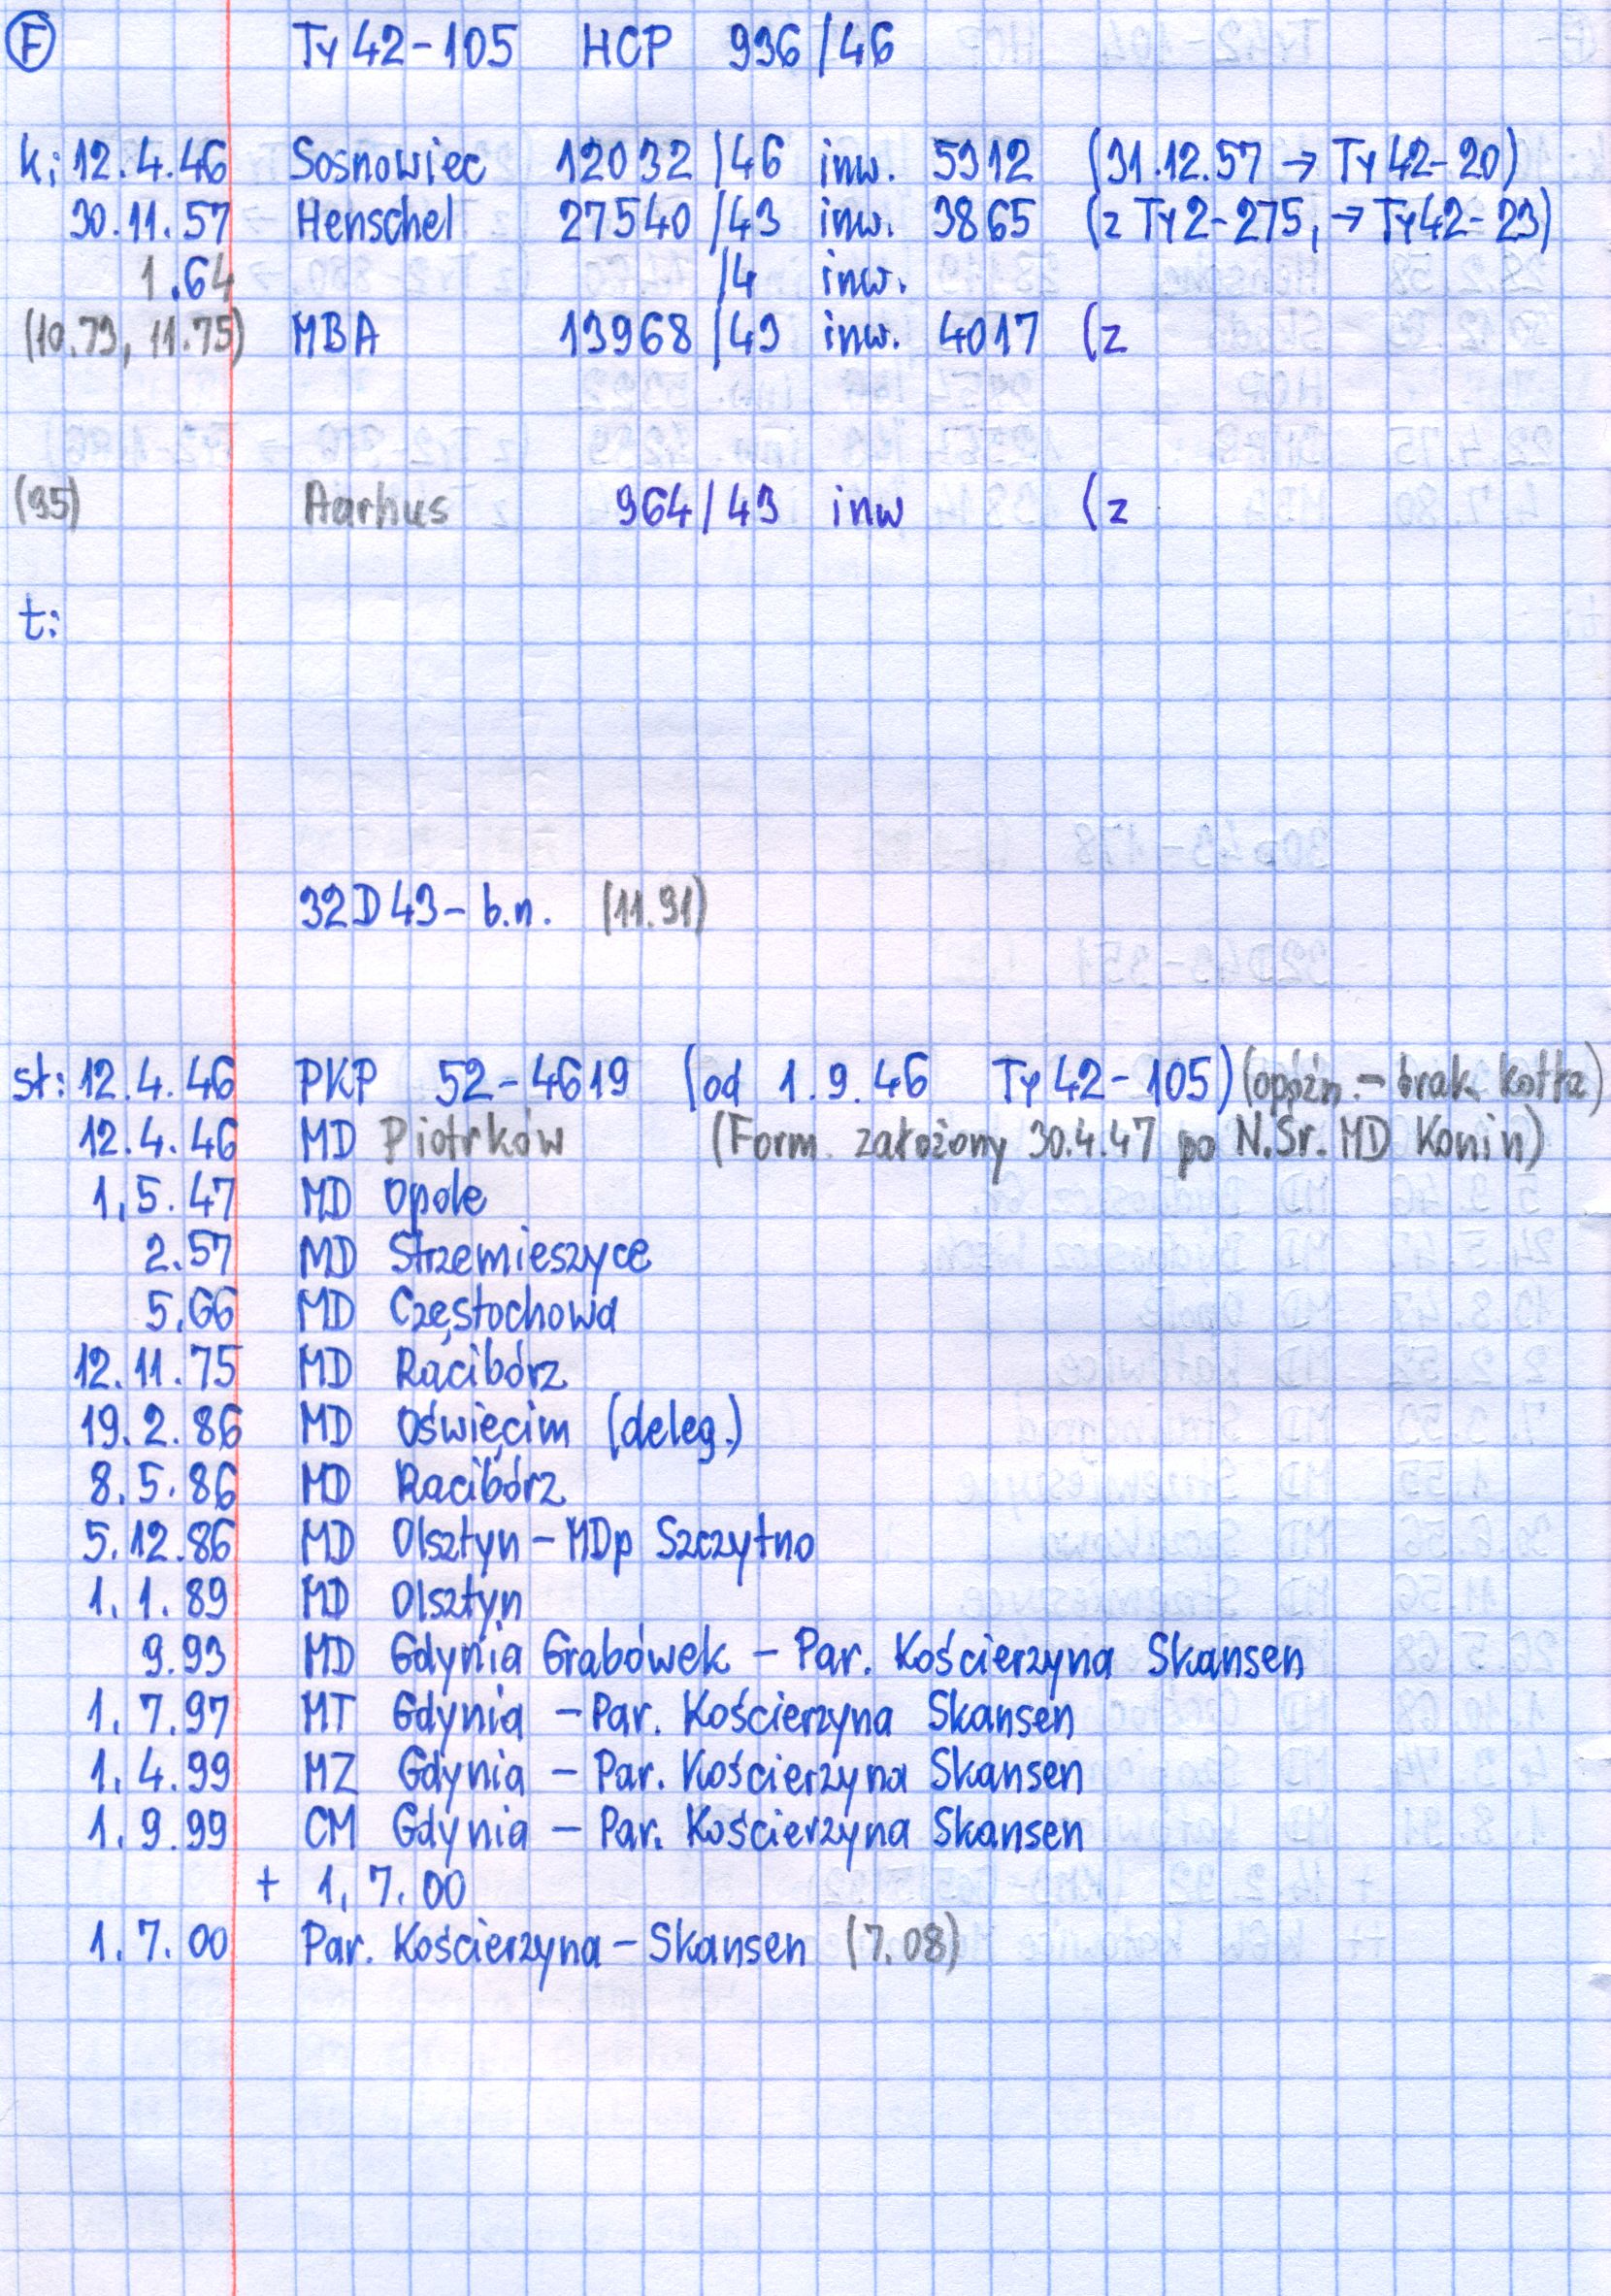 F Ty42-105 HCP 936/46
k: 12.4.46 Sosnowiec 12032/46 inw. 5912 (31.12.57 → Ty42-20)
30.11.57 Henschel 27540/43 inw. 3865 (z Ty2-275, → Ty42-23)
1.64 /4 inw.
(10.73, 11.75) MBA 13968/43 inw. 4017 (z
(95) Aarhus 964/43 inw (z
t:
32D43-b.n. (11.91)
st: 12.4.46 PKP 52-4619 (od 1.9.46 Ty42-105) (opóźn. - brak kotła)
12.4.46 MD Piotrków (Form. założony 30.4.47 po N.Śr. MD Konin)
1.5.47 MD Opole
2.57 MD Strzemieszyce
5.66 MD Częstochowa
12.11.75 MD Racibórz
19.2.86 MD Oświęcim (deleg.)
8.5.86 MD Racibórz
5.12.86 MD Olsztyn - MDp Szczytno
1.1.89 MD Olsztyn
9.93 MD Gdynia Grabówek - Par. Kościerzyna Skansen
1.7.97 MT Gdynia - Par. Kościerzyna Skansen
1.4.99 MZ Gdynia - Par. Kościerzyna Skansen
1.9.99 CM Gdynia - Par. Kościerzyna Skansen
+ 1.7.00
1.7.00 Par. Kościerzyna - Skansen (7.08)